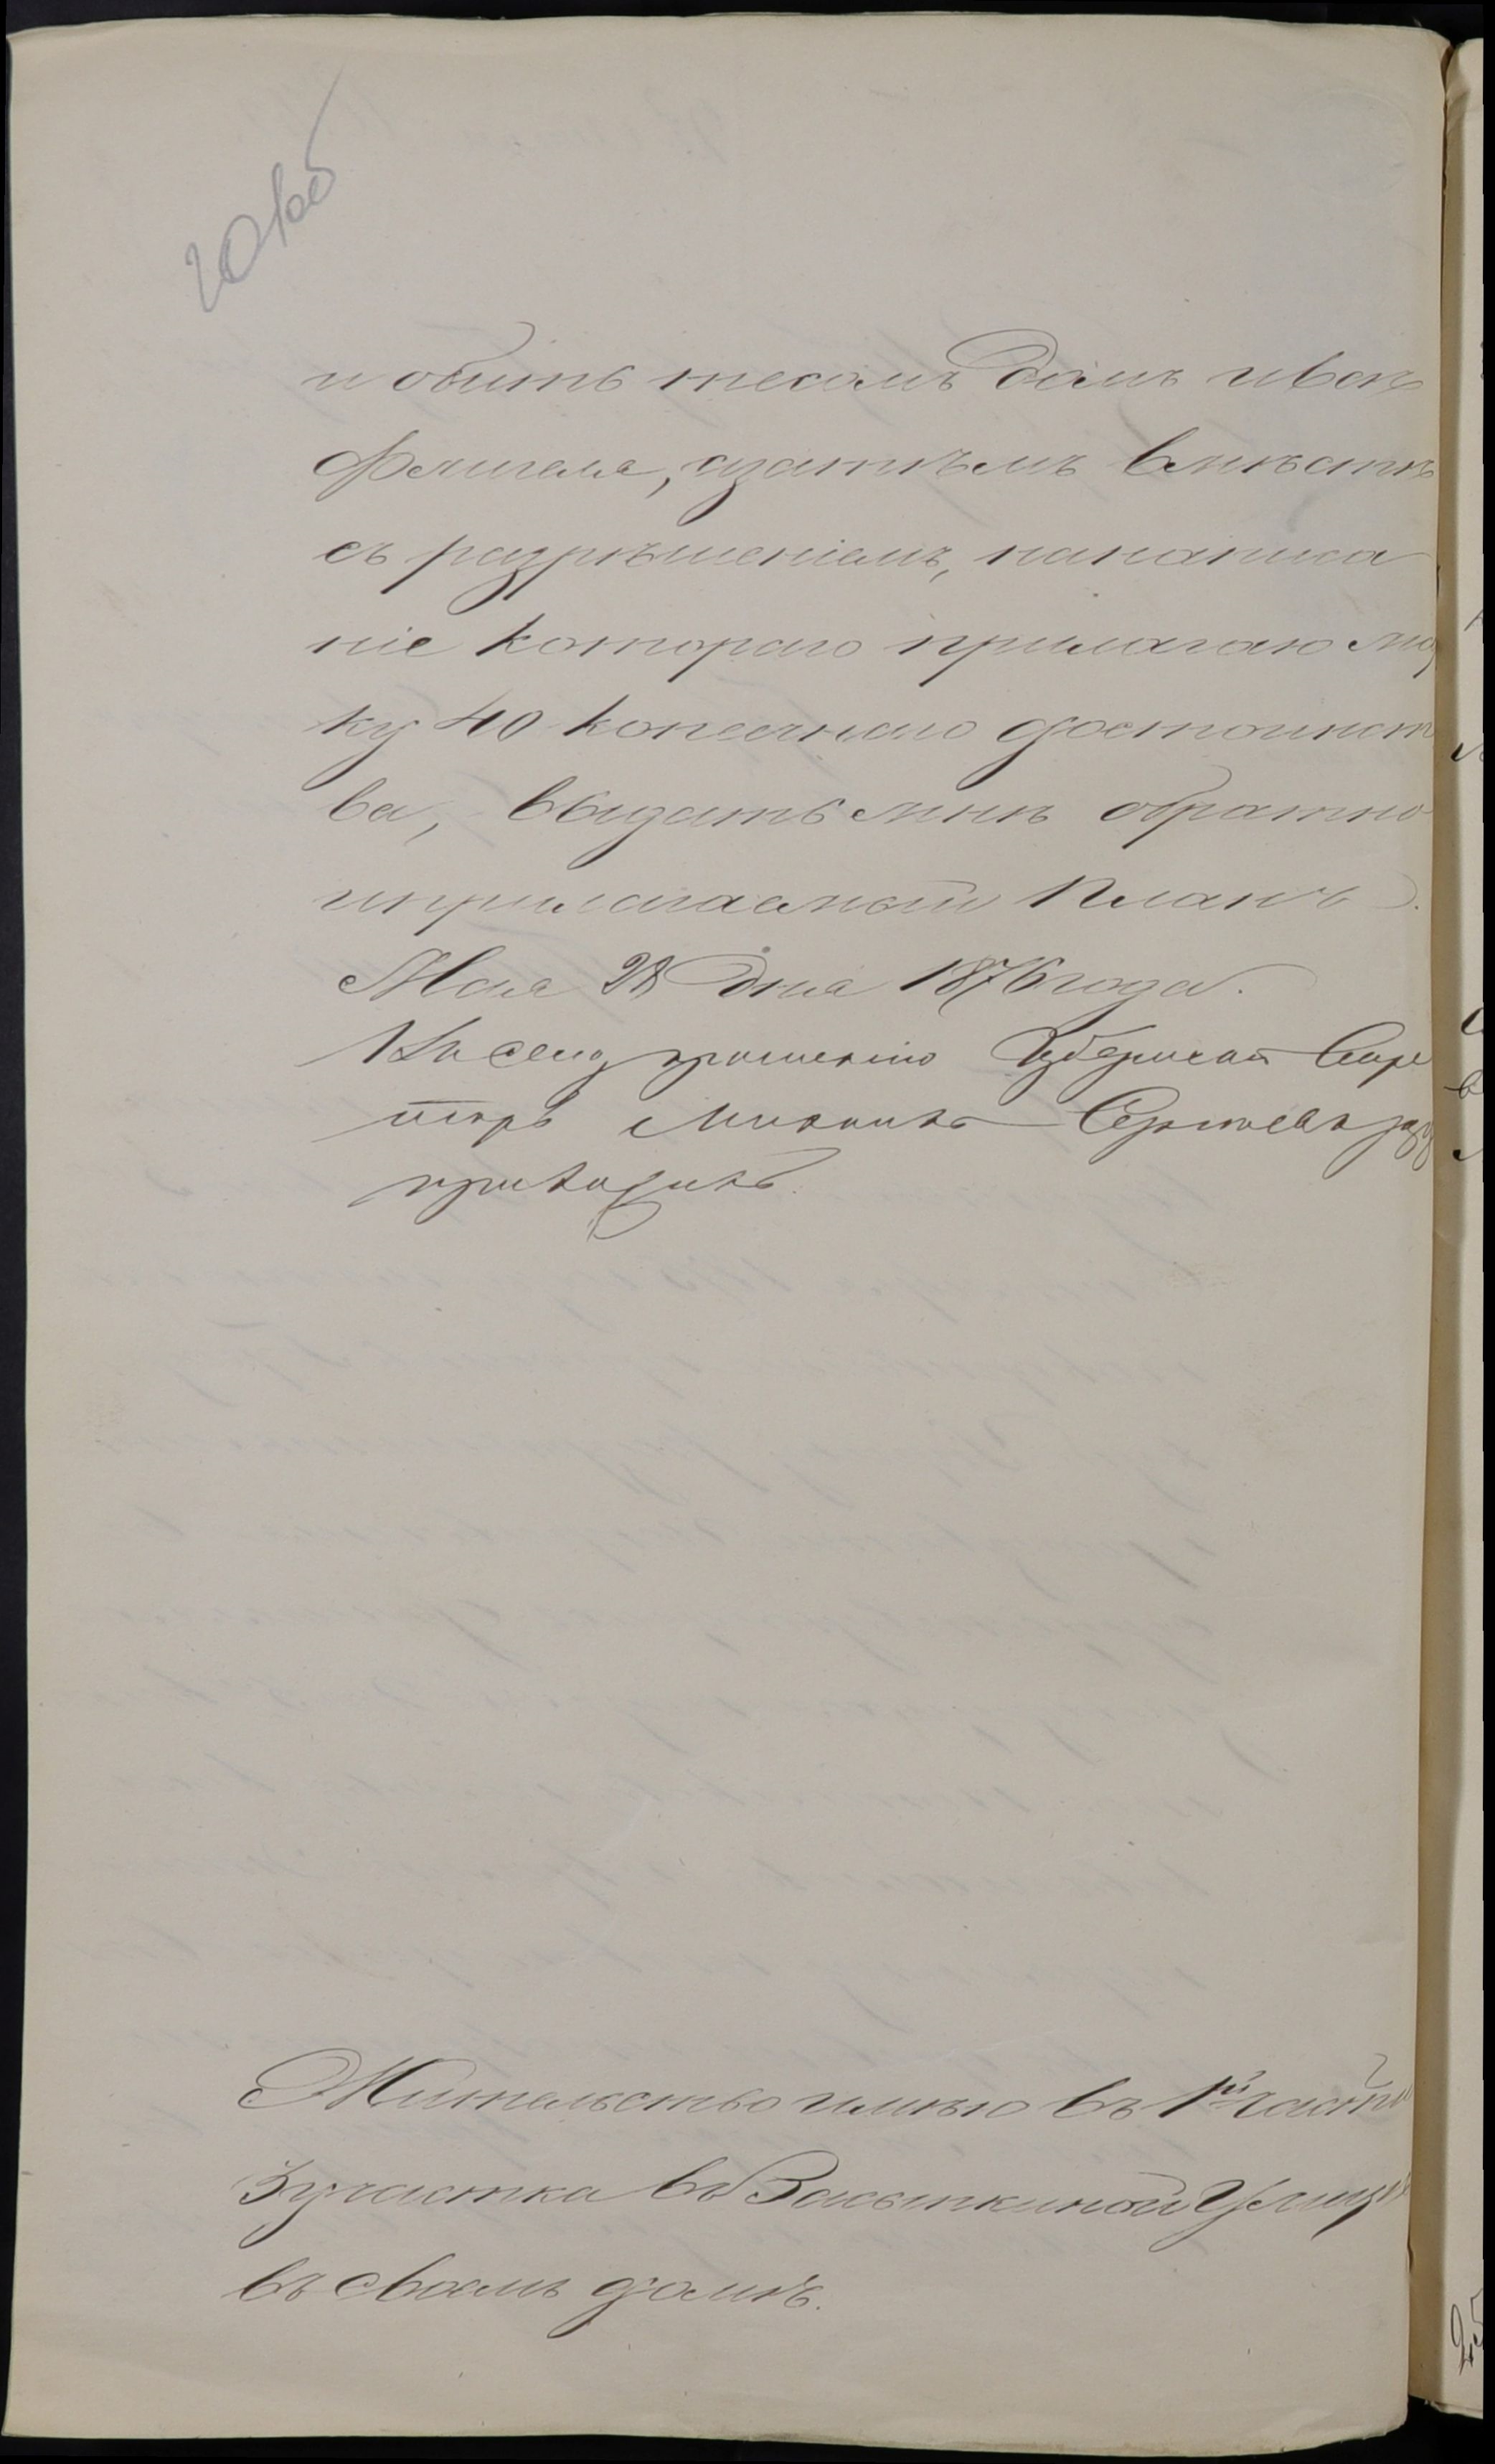 20 об
и обшить тесомъ домъ и вон
флигеля, а затѣмъ вмѣстѣ
съ разрѣшеніемъ, на написа
ніе котораго прилагаю мар
ку 40 копеечнаго достоинст
ва, выдать мнѣ обратно
и прилагаемый Планъ.
Мая 28 дня 1876 года.
Къ сему прошенію Губернскій Секре
тарь Михаилъ Сергѣевъ
приходитъ
Жительство имѣю въ 1й части
3 участка въ Засыпкиной Улицѣ
въ своемъ домѣ.